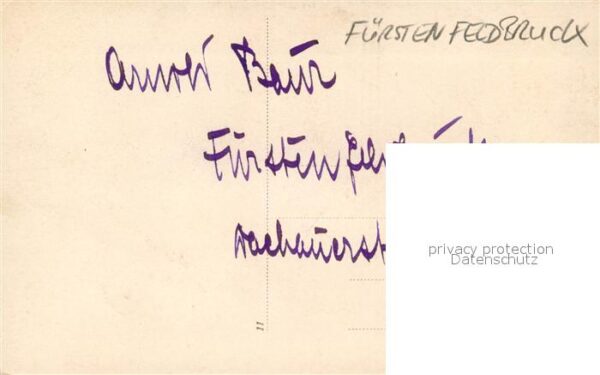 FÜRSTENFELDBRUCK
Arnold Baur
Fürstenfeld
Dachauerst
privacy protection
Datenschutz
11